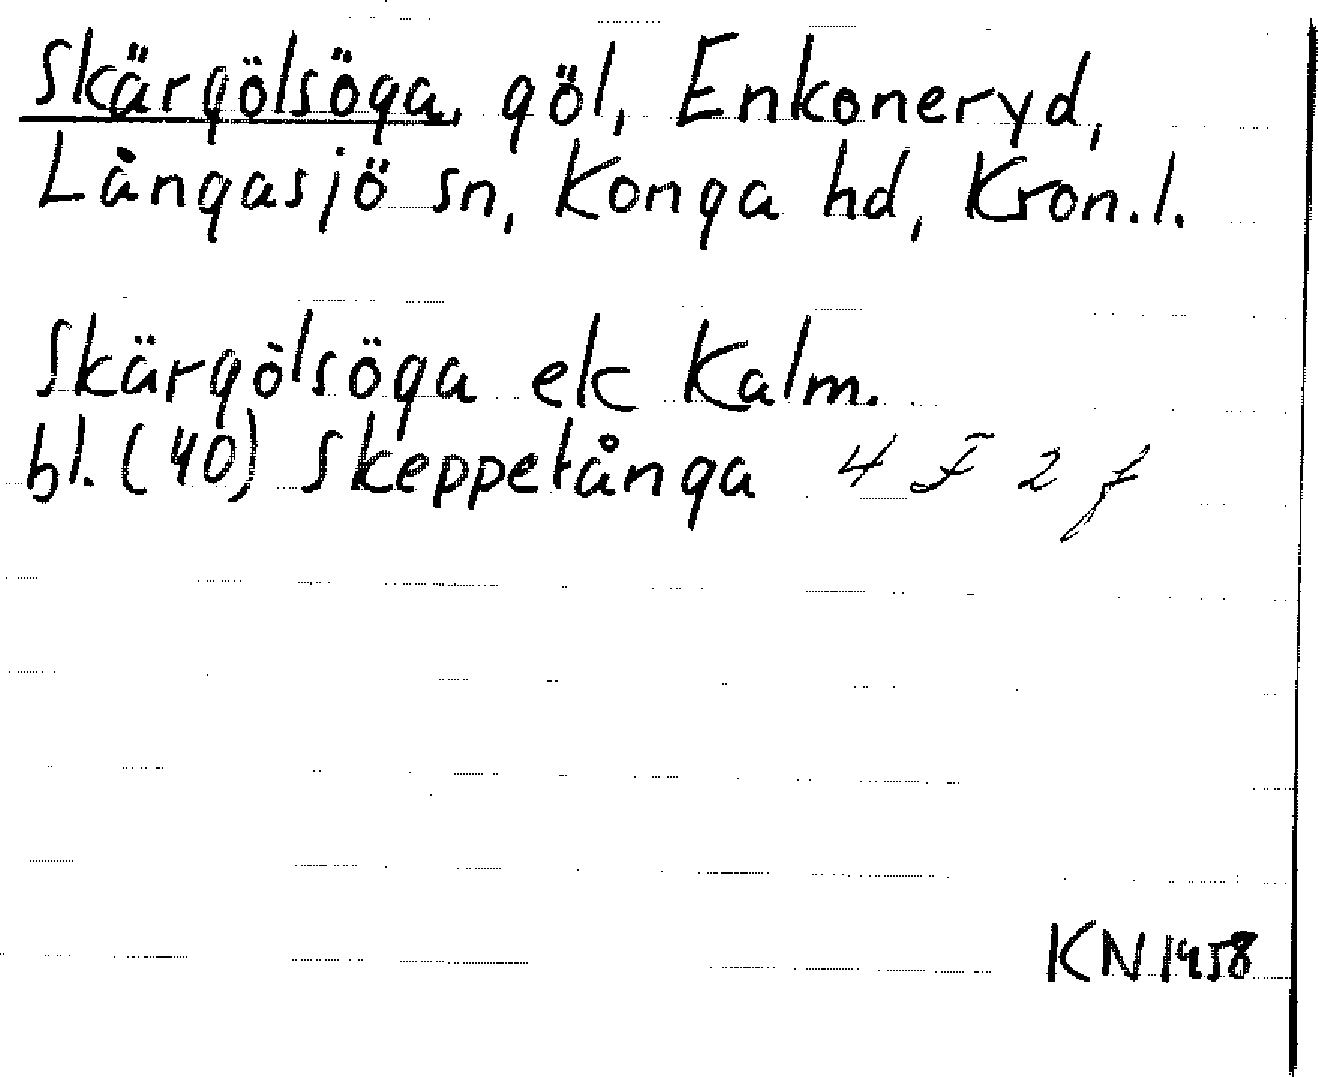 Skärgölsöga, göl, Enkoneryd,
Långasjö sn, Konga hd, Kron.l.
Skärgölsöga ek Kalm.
bl. (40) Skeppetånga 4 F 2 f
KN 1958